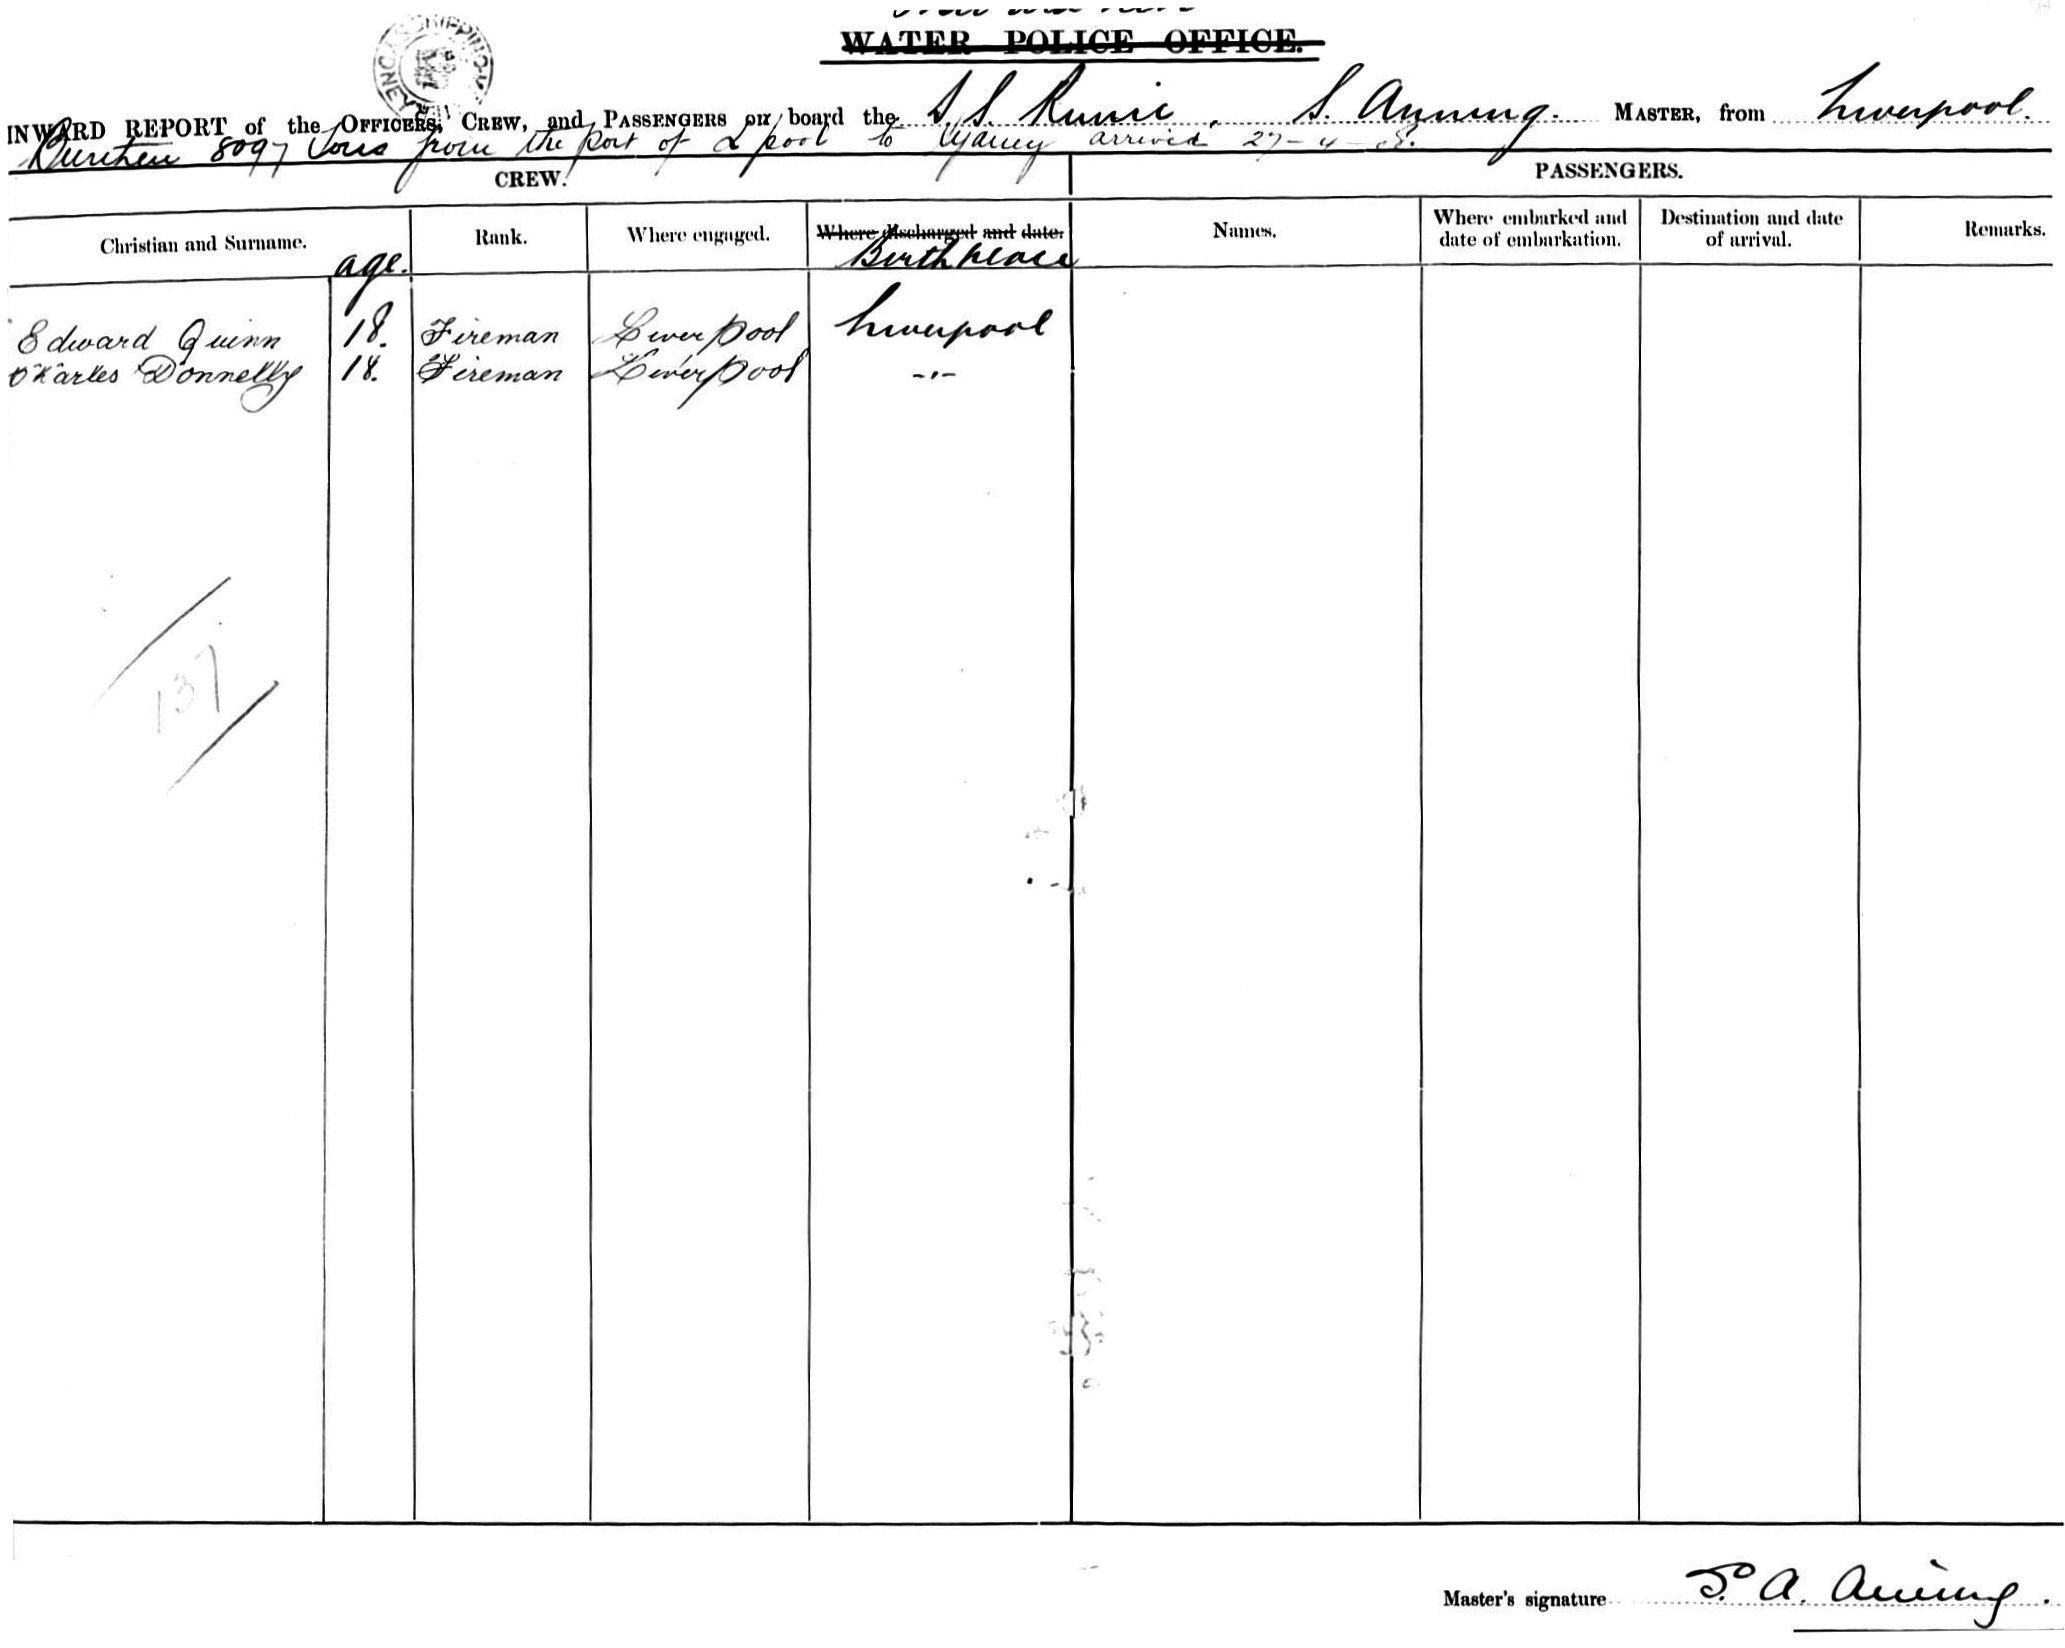 WATER POLICE OFFICE.
INWARD REPORT of the OFFICERS, CREW, and PASSENGERS on board the S. S. Runic, S. Anning. MASTER, from Liverpool.
Burthen 8097 Tons from the port of Lpool to Sydney arrived 27-4-
CREW. PASSENGERS.
Christian and Surname. age. Rank. Where engaged. Where discharged and date. Birthplace Names. Where embarked and date of embarkation. Destination and date of arrival. Remarks.
Edward Quinn 18. Fireman Liverpool Liverpool
Charles Donnelly 18. Fireman Liverpool -"-
137
Master's signature S. A. Anning.